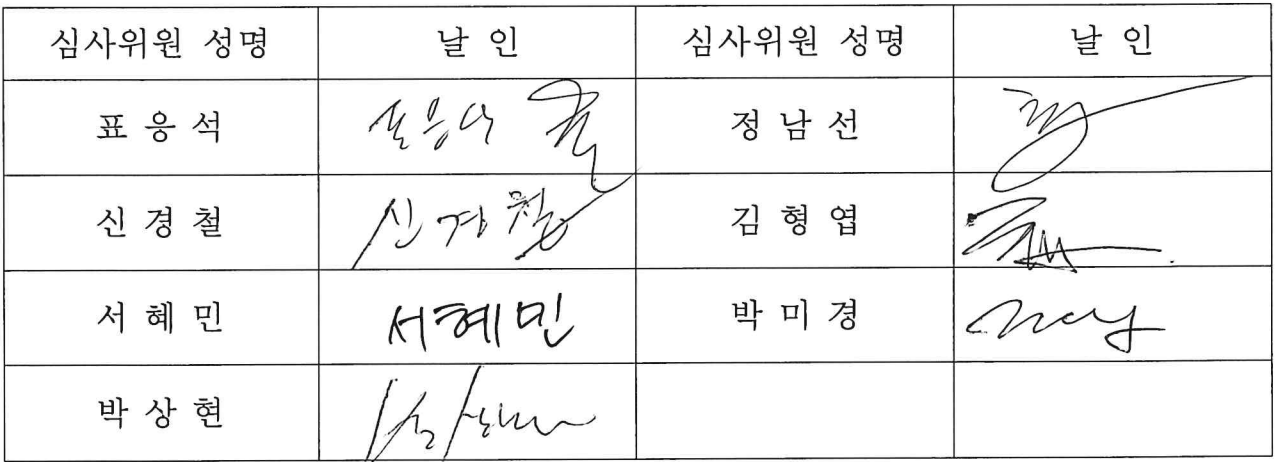 심사위원 성명 날 인 심사위원 성명 날 인
표 응 석 표응석 정 남 선
신 경 철 신경철 김 형 엽
서 혜 민 서혜민 박 미 경
박 상 현